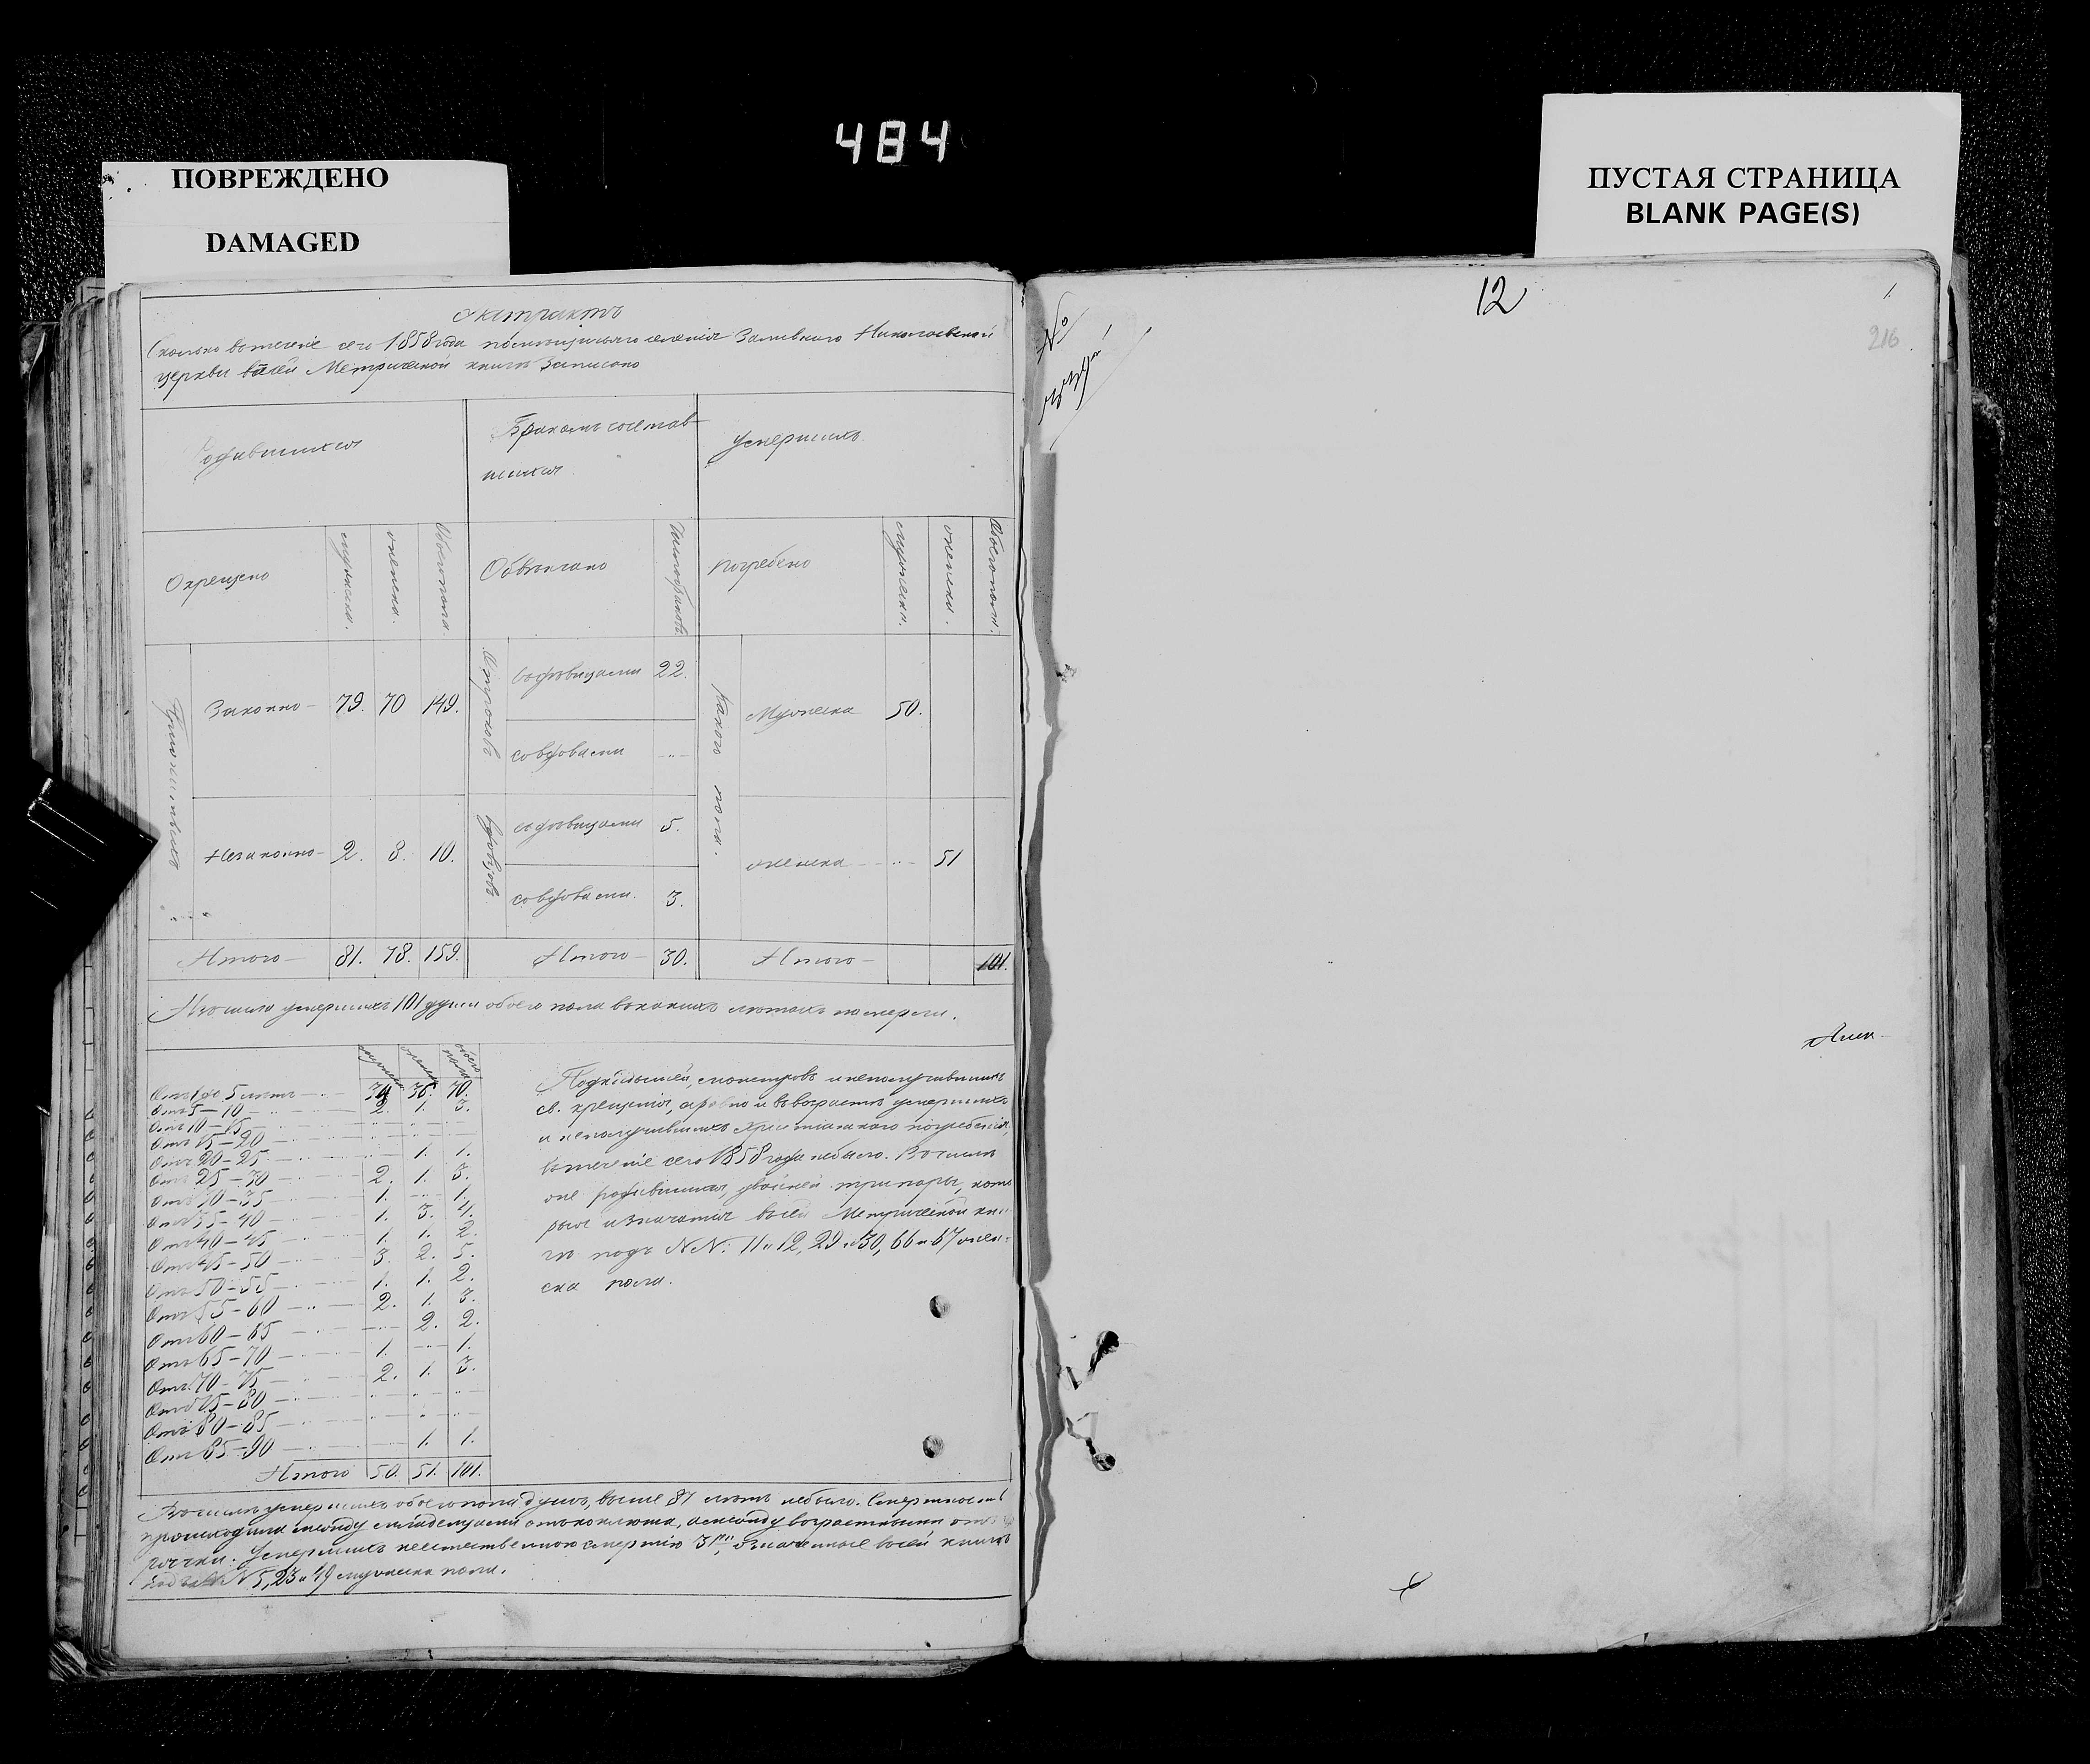 484
ПОВРЕЖДЕНО
DAMAGED
ПУСТАЯ СТРАНИЦА
BLANK PAGE(S)
Экстрактъ
Сколько втечение сего 1858 года селенія Заливкаго Николаевской
церкви всей Метрической книгѣ Записано
Родившихся
Бракомъ сочетав-
шихся
Умершихъ
Окрещено
мужеска.
женска.
Обоего пола.
Обвенчано
Число браковъ
погребено
мужеска.
женска.
Обоего пола.
Законно 79. 70 149.
Незаконно 2. 8. 10.
Итого 81. 78. 159.
Отроковъ
Вдовцовъ
съ дѣвицами 22.
со вдовами
съ дѣвицами 5.
со вдовами. 3.
Итого 30.
Какого пола.
Мужеска 50.
женска 51
Итого 101.
Изъ числа умершихъ 101 души обоего пола въ какихъ лѣтахъ померли.
мужеска
женска
обоего пола
Отъ 1 до 5 лѣтъ 34 36. 70.
Отъ 5-10 2. 1. 3.
Отъ 10-15
Отъ 15-20
Отъ 20-25 1. 1.
Отъ 25-30 2. 1. 3.
Отъ 30-35 1. 1.
Отъ 35-40 1. 3. 4.
Отъ 40-45 1. 1. 2.
Отъ 45-50 3. 2. 5.
Отъ 50-55 1. 1. 2.
Отъ 55-60 2. 1. 3.
Отъ 60-65 2. 2.
Отъ 65-70 1. 1.
Отъ 70-75 2. 1. 3.
Отъ 75-80
Отъ 80-85
Отъ 85-90 1. 1.
Итого 50. 51. 101.
Подкидышей, монстровъ и неполучившихъ
св. крещенія, а ровно и въ возрастѣ умершихъ
и неполучившихъ Христіанскаго погребенія,
втеченіе сего 1858 года небыло. Вчислѣ
же родившихся, двойней три пары, кото
рые и значатся въ сей Метрической кни-
гѣ подъ NN: 11 и 12, 29 и 30, 66 и 67 жен-
ска пола.
Вчислѣ умершихъ обоего пола душъ, выше 87 лѣтъ небыло. Смертность
происходила между младенцами отъ коклюша, а между возрастными отъ
горячки. Умершихъ неестественною смертію 3, значатся въ сей книгѣ
подъ NN 5, 23 и 49 мужеска пола.
12
1.
216
№